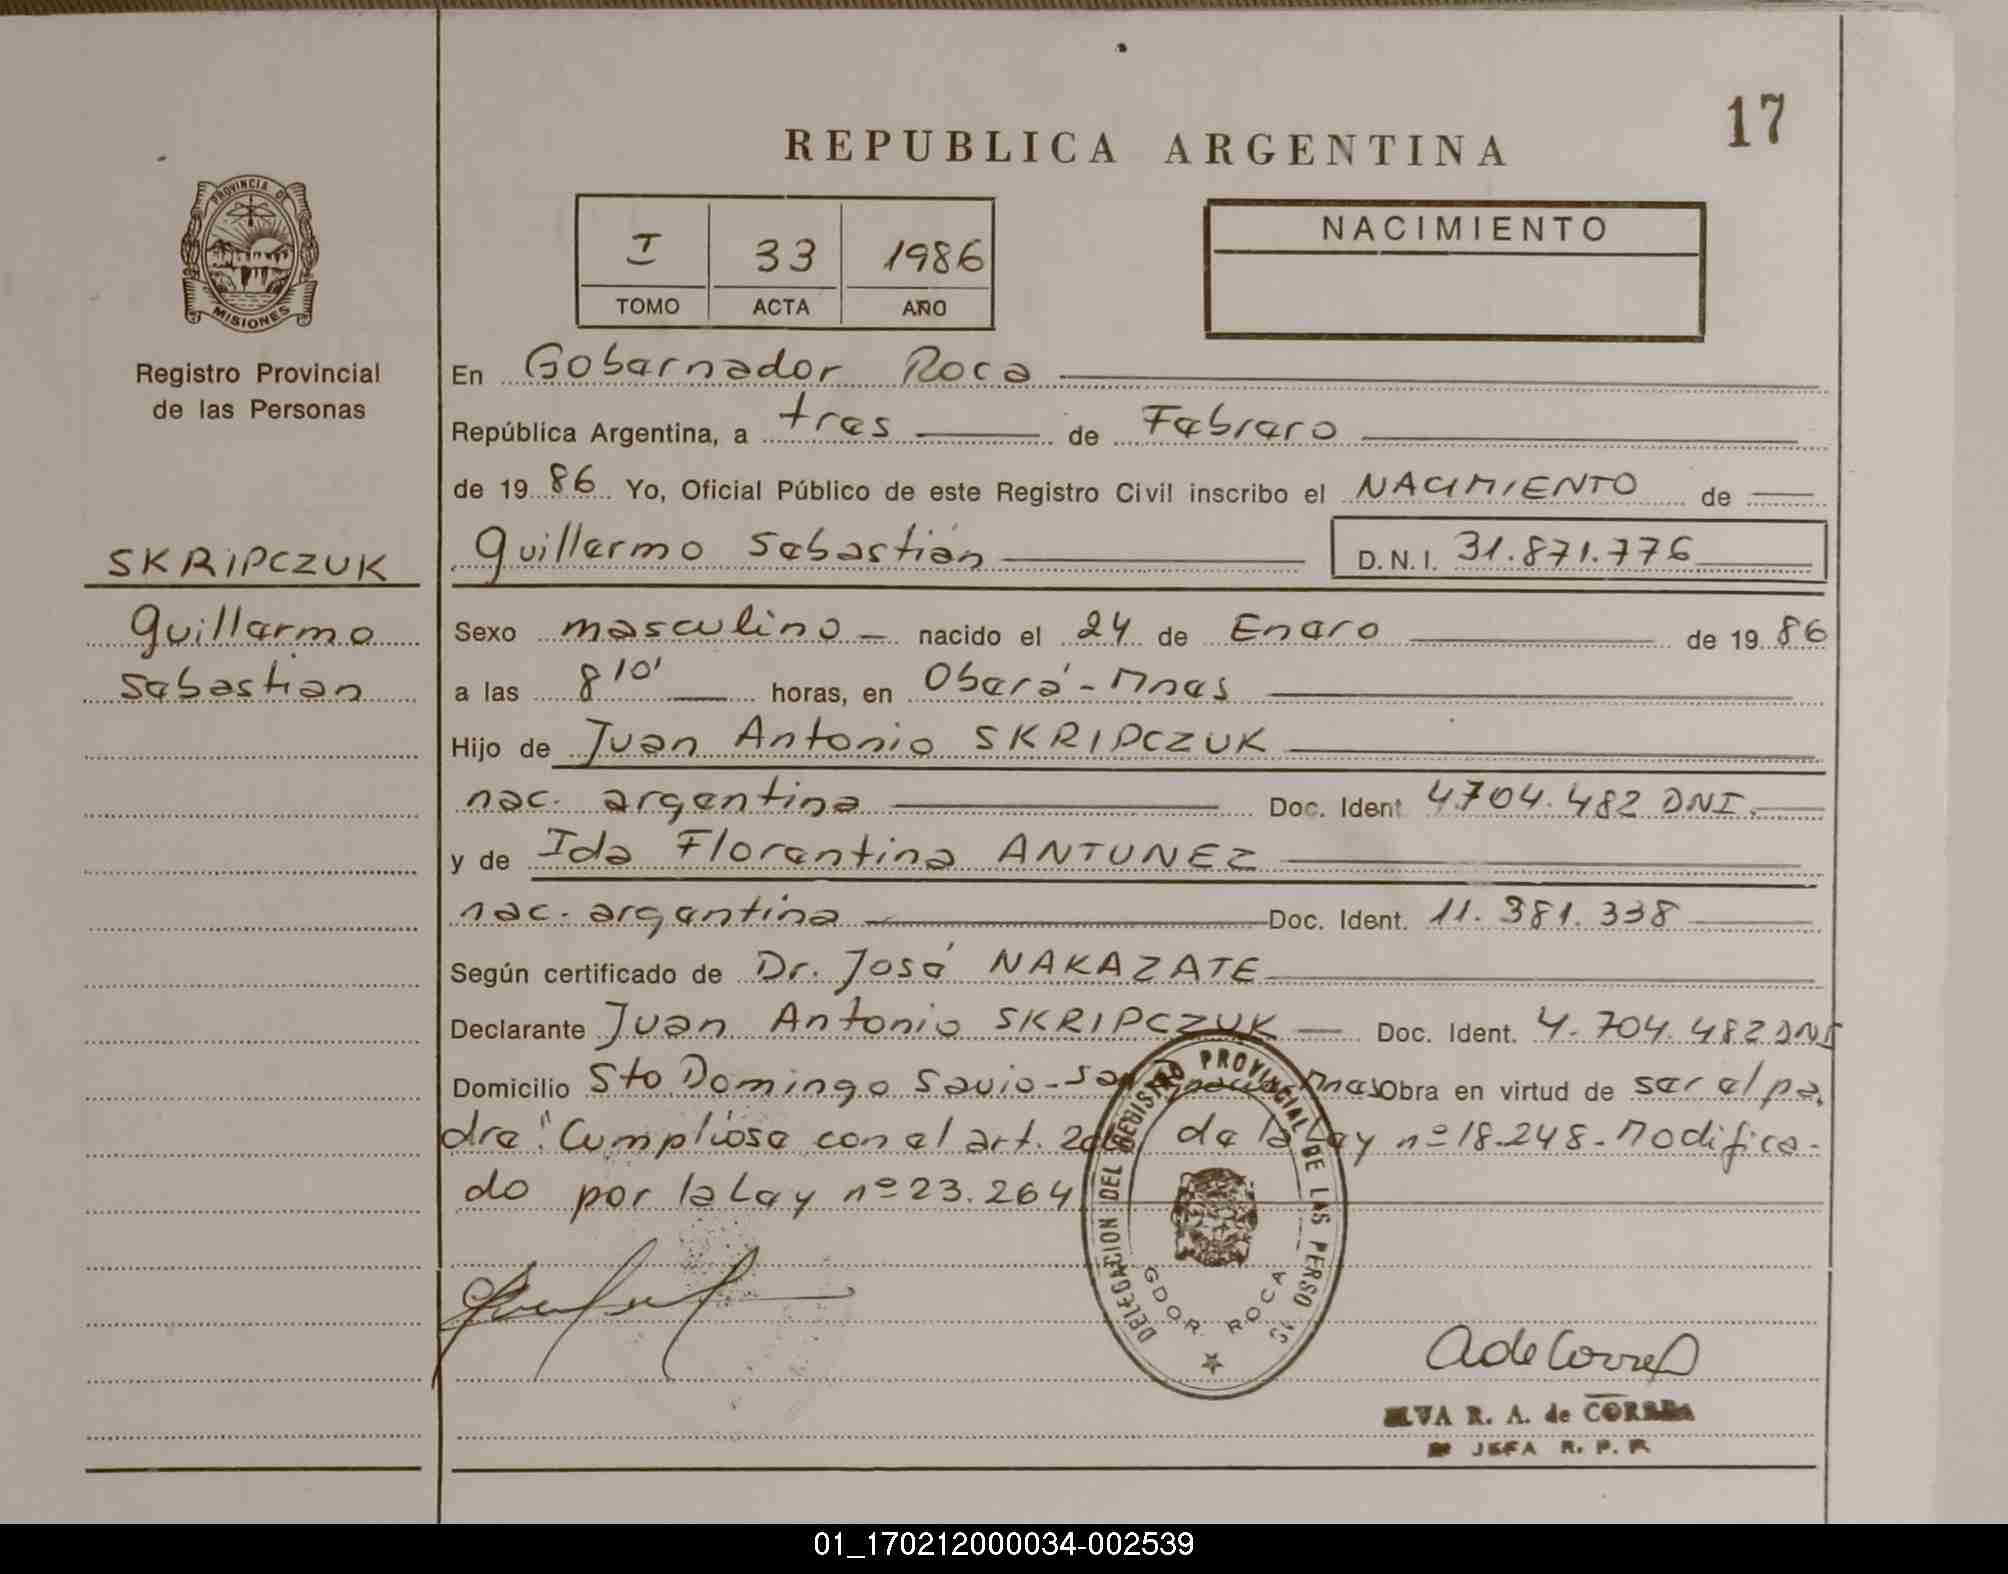 17
REPUBLICA ARGENTINA
PROVINCIA DE
MISIONES
Registro Provincial
de las Personas
I 33 1986
TOMO ACTA AÑO
NACIMIENTO
En Gobernador Roca
República Argentina, a tres de Febrero
de 19 86 Yo, Oficial Público de este Registro Civil inscribo el NACIMIENTO de
SKRIPCZUK
Guillermo
Sebastián
Guillermo Sebastián D.N.I. 31.871.776
Sexo masculino nacido el 24 de Enero de 19 86
a las 8 10' horas, en Oberá - Mnes
Hijo de Juan Antonio SKRIPCZUK
nac. argentina Doc. Ident 4.704.482 DNI.
y de Ida Florentina ANTUNEZ
nac. argentina Doc. Ident. 11.381.338
Según certificado de Dr. José NAKAZATE
Declarante Juan Antonio SKRIPCZUK Doc. Ident. 4.704.482 DNI
Domicilio Sto Domingo Savio - San Ignacio Mnes Obra en virtud de ser el pa-
dre." Cumplióse con el art. de la Ley nº 18.248 - Modifica-
do por la Ley nº 23.264
DELEGACION DEL REGISTRO PROVINCIAL DE LAS PERSO AS
GDOR. ROCA
A de Correa
ELVA R. A. de CORREA
JEFA R. P. P.
01_170212000034-002539